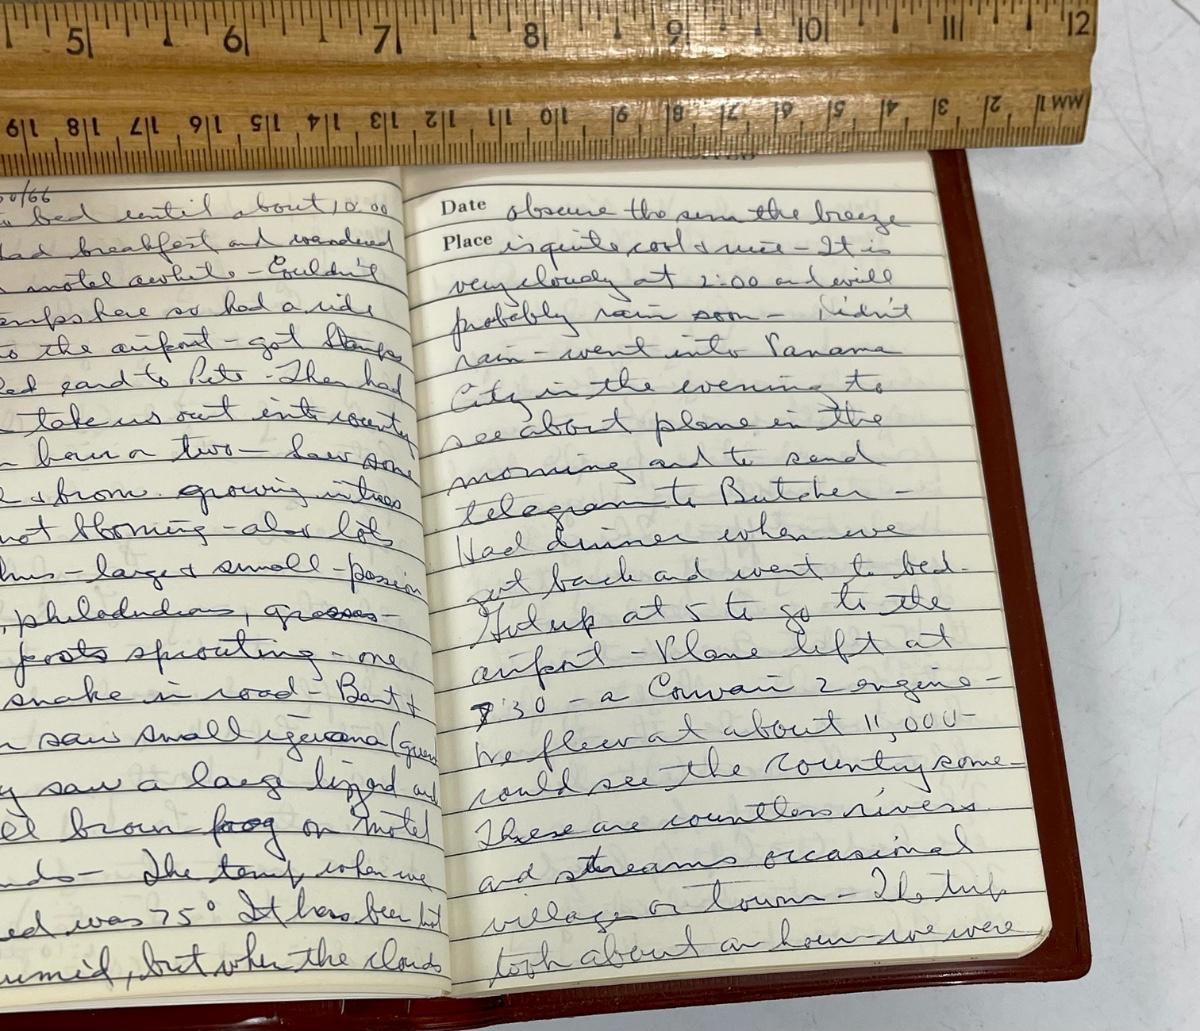 5 6 7 8 9 10 11 12
19 18 17 16 15 14 13 12 11 10 9 8 7 6 5 4 3 2 1 MM
0/66
bed until about 10:00
had breakfast and wandered
motel awhile - Couldn't
here so had a ride
to the airport - got Stamps
card to Pete - Then had
take us out into county
hour or two - Saw some
& brom. growing in trees
not blooming - also lots
- large & small - passion
, philodudrons, grasses -
posts sprouting - one
snake in road - Bart &
saw small iguana (green
saw a large lizzard and
brown frog on motel
- The temp when we
was 75° It has been hot
humid, but when the clouds
Date obscure the sun the breeze
Place is quite cool & nice - It is
very cloudy at 2:00 and will
probably rain soon - Didn't
rain - went into Panama
City in the evening to
see about plane in the
morning and to send
telegram to Butcher -
Had dinner when we
got back and went to bed -
Got up at 5 to go to the
airport - Plane left at
7:30 - a Convair 2 engine -
We flew at about 11,000 -
could see the country some -
These are countless rivers
and streams occasional
village or towns - The trip
took about an hour - we were